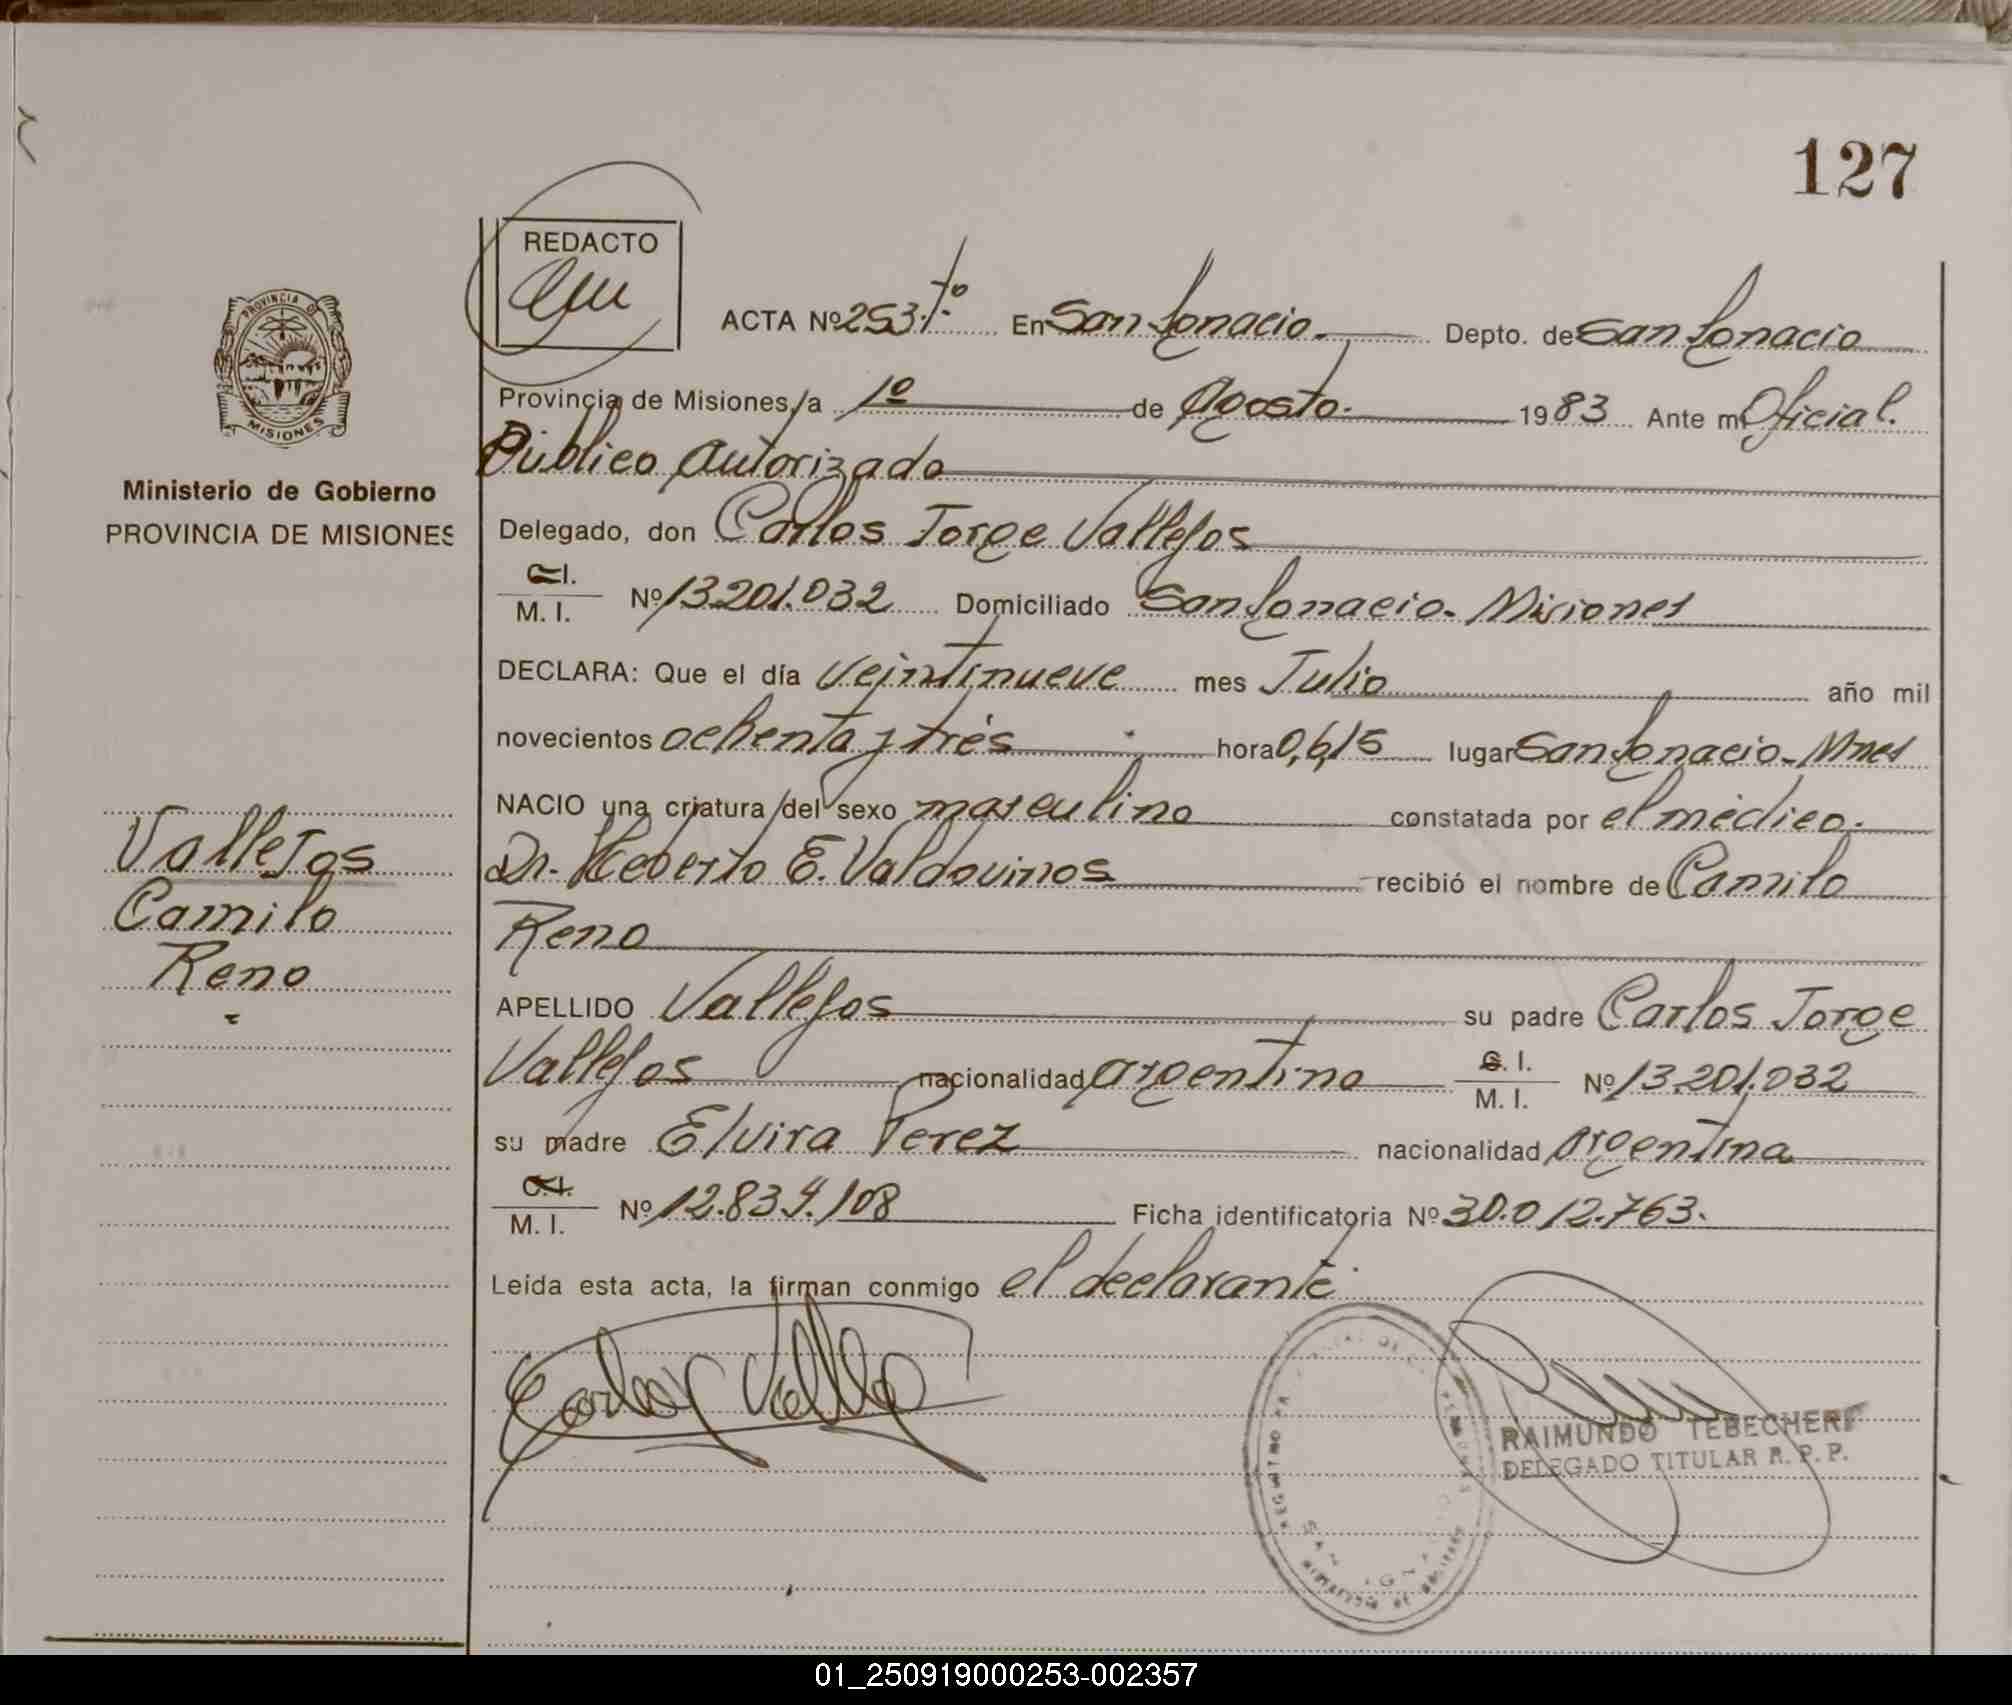 127
REDACTO
PROVINCIA DE
MISIONES
Ministerio de Gobierno
PROVINCIA DE MISIONES
Vallejos
Camilo
Reno
ACTA Nº 253. Tº En San Ignacio Depto. de San Ignacio
Provincia de Misiones, a 1º de Agosto. 1983 Ante mi Oficial.
Público Autorizado
Delegado, don Carlos Jorge Vallejos
C.I.
M. I. Nº 13.201.032 Domiciliado San Ignacio. Misiones
DECLARA: Que el día veintinueve mes Julio año mil
novecientos ochenta y trés hora 0,6,15 lugar San Ignacio. Mnes
NACIO una criatura del sexo masculino constatada por el médico.
Dr. Heberto E. Valdovinos recibió el nombre de Camilo
Reno
APELLIDO Vallejos su padre Carlos Jorge
Vallejos nacionalidad argentino C. I.
M. I. Nº 13.201.032
su madre Elvira Perez nacionalidad argentina
C.I.
M. I. Nº 12.834.108 Ficha identificatoria Nº 30.012.763.
Leída esta acta, la firman conmigo el declarante
Carlos J Vallejos
RAIMUNDO TEBECHERI
DELEGADO TITULAR R. P. P.
SAN IGNACIO
01_250919000253-002357